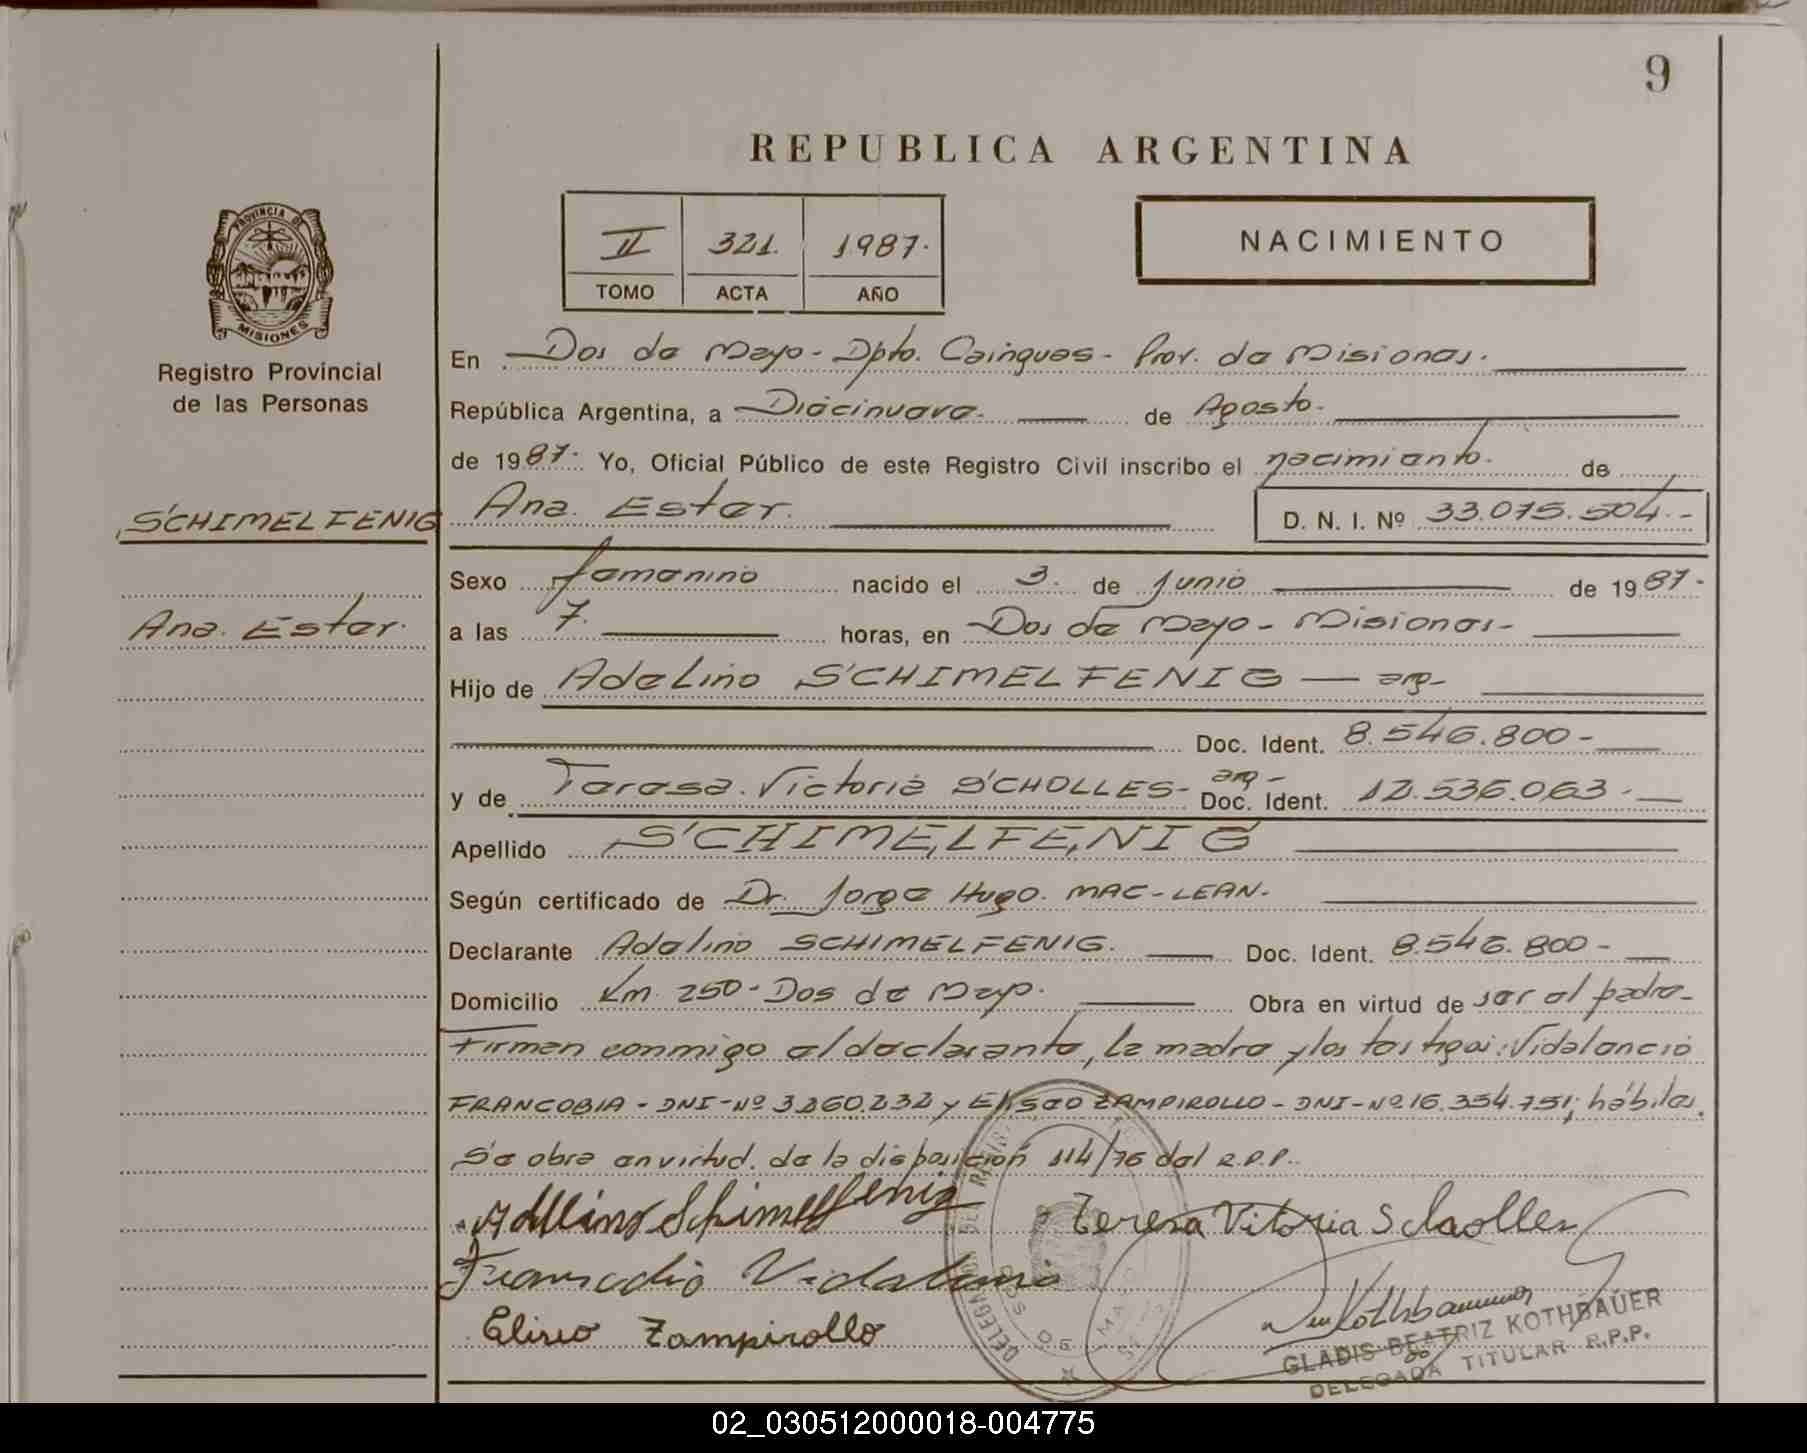 9
REPUBLICA ARGENTINA
II 321. 1.987.
TOMO ACTA AÑO
NACIMIENTO
PROVINCIA DE
MISIONES
Registro Provincial
de las Personas
SCHIMELFENIG
Ana. Ester.
En Dos de Mayo - Dpto. Cainguas - Prov. de Misiones.
República Argentina, a Diecinueve. de Agosto.
de 1987. Yo, Oficial Público de este Registro Civil inscribo el nacimiento. de
Ana. Ester. D. N. I. Nº 33.075.504.-
Sexo femenino nacido el 3. de Junio de 1987.
a las 7. horas, en Dos de Mayo - Misiones -
Hijo de Adelino SCHIMELFENIG — arg-
Doc. Ident. 8.546.800-
y de Teresa. Victoria SCHOLLES- arg- Doc. Ident. 12.536.063.-
Apellido SCHIMELFENIG
Según certificado de Dr. Jorge Hugo. MAC-LEAN.
Declarante Adelino SCHIMELFENIG. Doc. Ident. 8.546.800-
Domicilio Km. 250 - Dos de Mayo. Obra en virtud de ser el padre-
Firman conmigo el declarante, la madre y los testigos: Vidalencio
FRANCOBIA - DNI-Nº 3.260.232 y Eliseo ZAMPIROLLO - DNI-Nº 16.354.751; hábiles.
Se obra en virtud. de la disposición 114/76 del R.P.P.
Adelino Schimelfenig Teresa Vitoria Scholles
Vidalencio
Eliseo Zampirollo
GLADIS BEATRIZ KOTHBAUER
DELEGADA TITULAR R.P.P.
02_030512000018-004775